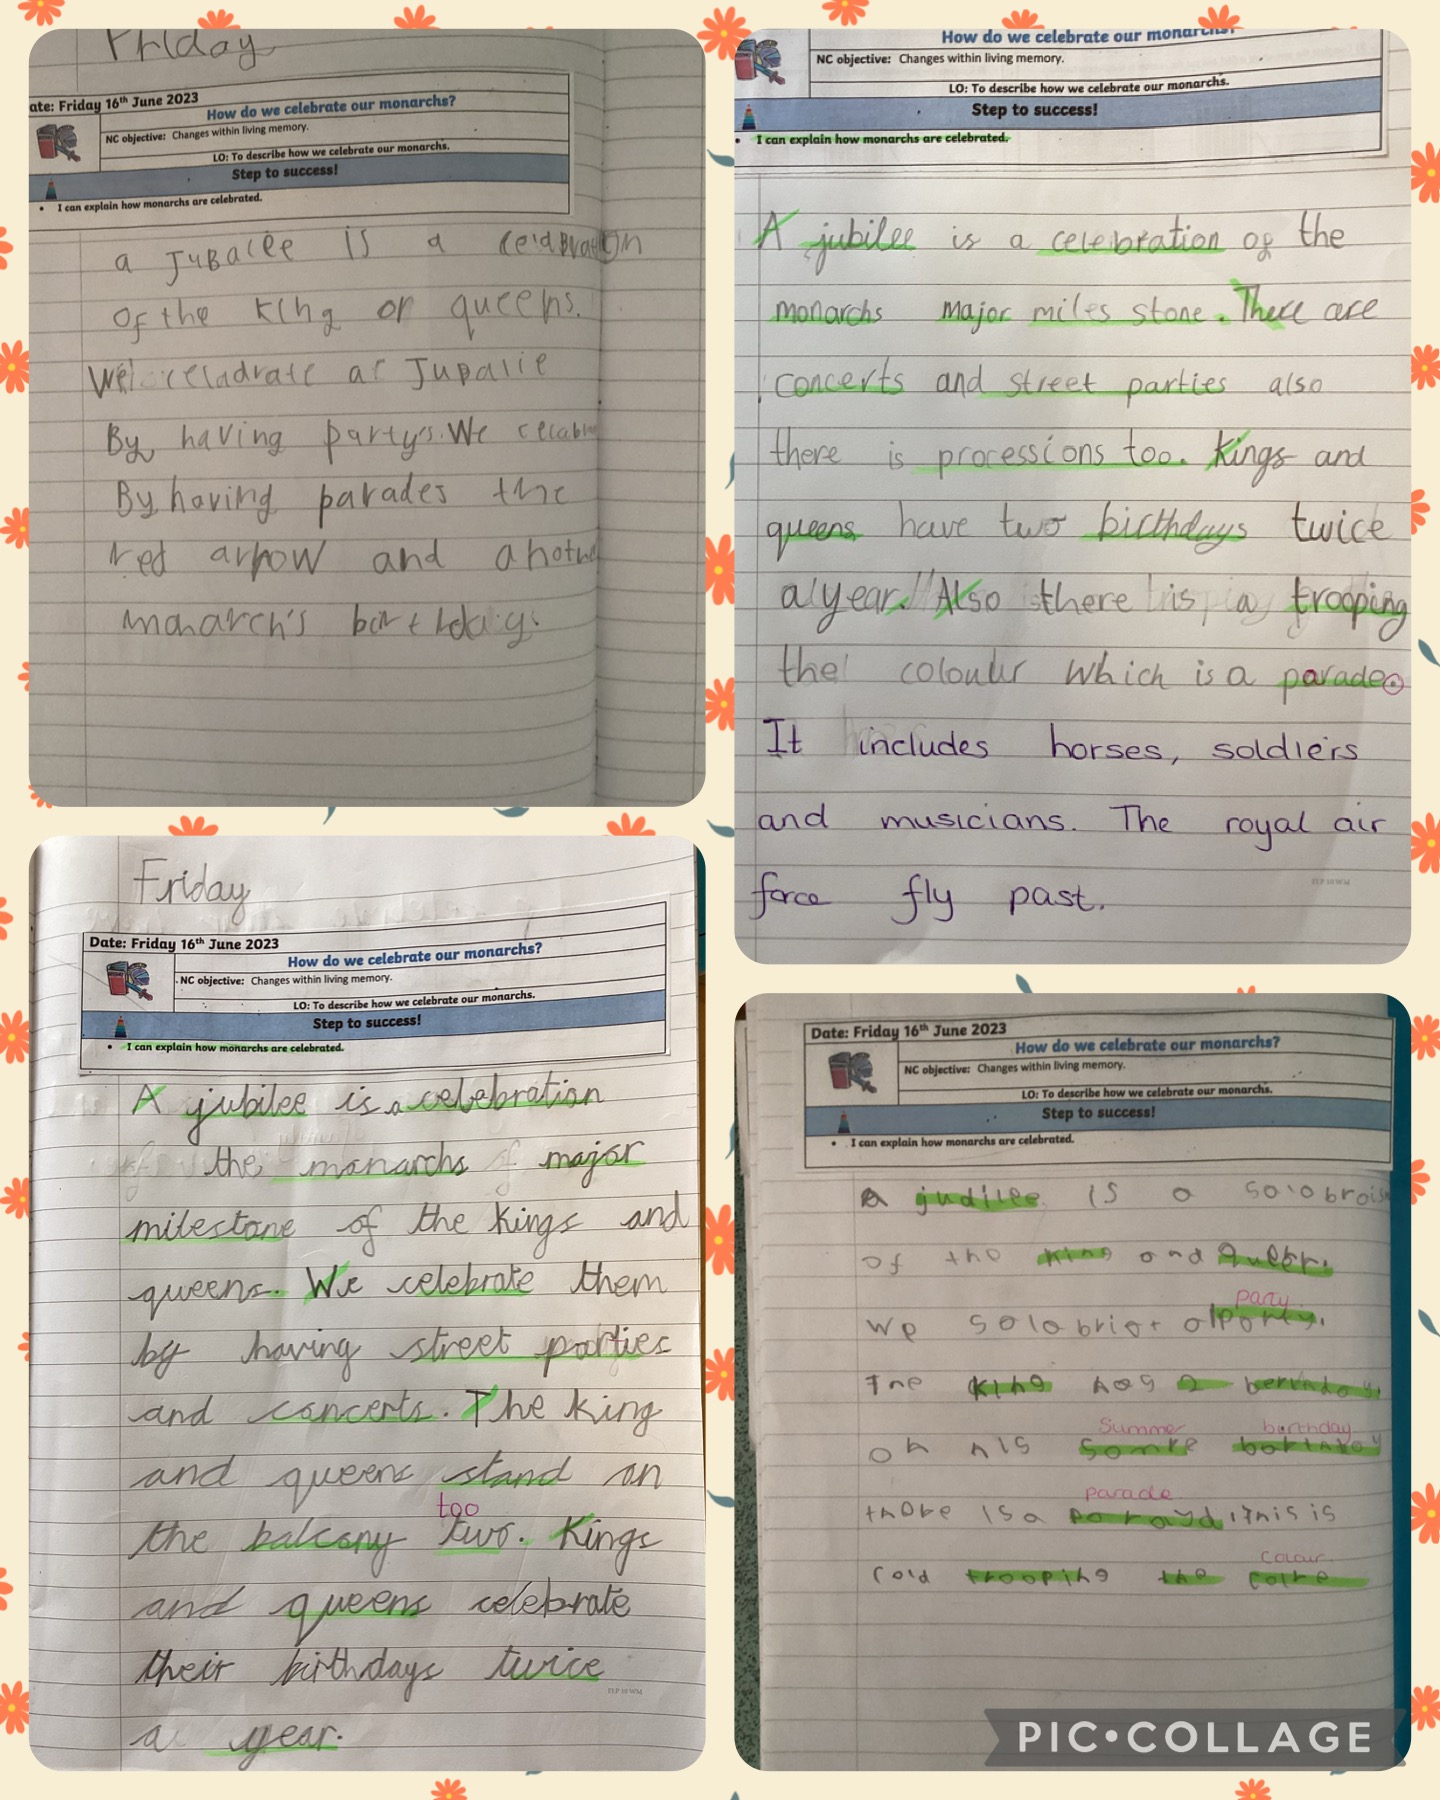 Friday
ate: Friday 16th June 2023
How do we celebrate our monarchs?
NC objective: Changes within living memory.
LO: To describe how we celebrate our monarchs.
Step to success!
• I can explain how monarchs are celebrated.
a JuBalee is a
of the King or queens.
We celadrate a Jupalie
By having party's. We celabr
By having parades the
red arrow and anoth
monarch's birthday.
How do we celebrate our monarchs?
NC objective: Changes within living memory.
LO: To describe how we celebrate our monarchs.
Step to success!
• I can explain how monarchs are celebrated.
A jubilee is a celebration of the
monarchs major miles stone. There are
concerts and street parties also
there is processions too. Kings and
queens have two birthdays twice
a year. Also there is a trooping
the colour which is a parade.
It includes horses, soldiers
and musicians. The royal air
force fly past.
TLP 10 WM
Friday
Date: Friday 16th June 2023
How do we celebrate our monarchs?
NC objective: Changes within living memory.
LO: To describe how we celebrate our monarchs.
Step to success!
• I can explain how monarchs are celebrated.
A jubilee is a celebration
of the monarchs of major
milestone of the kings and
queens. We celebrate them
by having street parties
and concerts. The king
and queens stand on
too
the balcony two. Kings
and queens celebrate
their birthdays twice
TLP 10 WM
a year.
Date: Friday 16th June 2023
How do we celebrate our monarchs?
NC objective: Changes within living memory.
LO: To describe how we celebrate our monarchs.
Step to success!
• I can explain how monarchs are celebrated.
A judilee is a
of the king and
party
we a party.
The king has 2
Summer birthday
on his
parade
there is a this is
colour
cold trooping the colre
PIC•COLLAGE